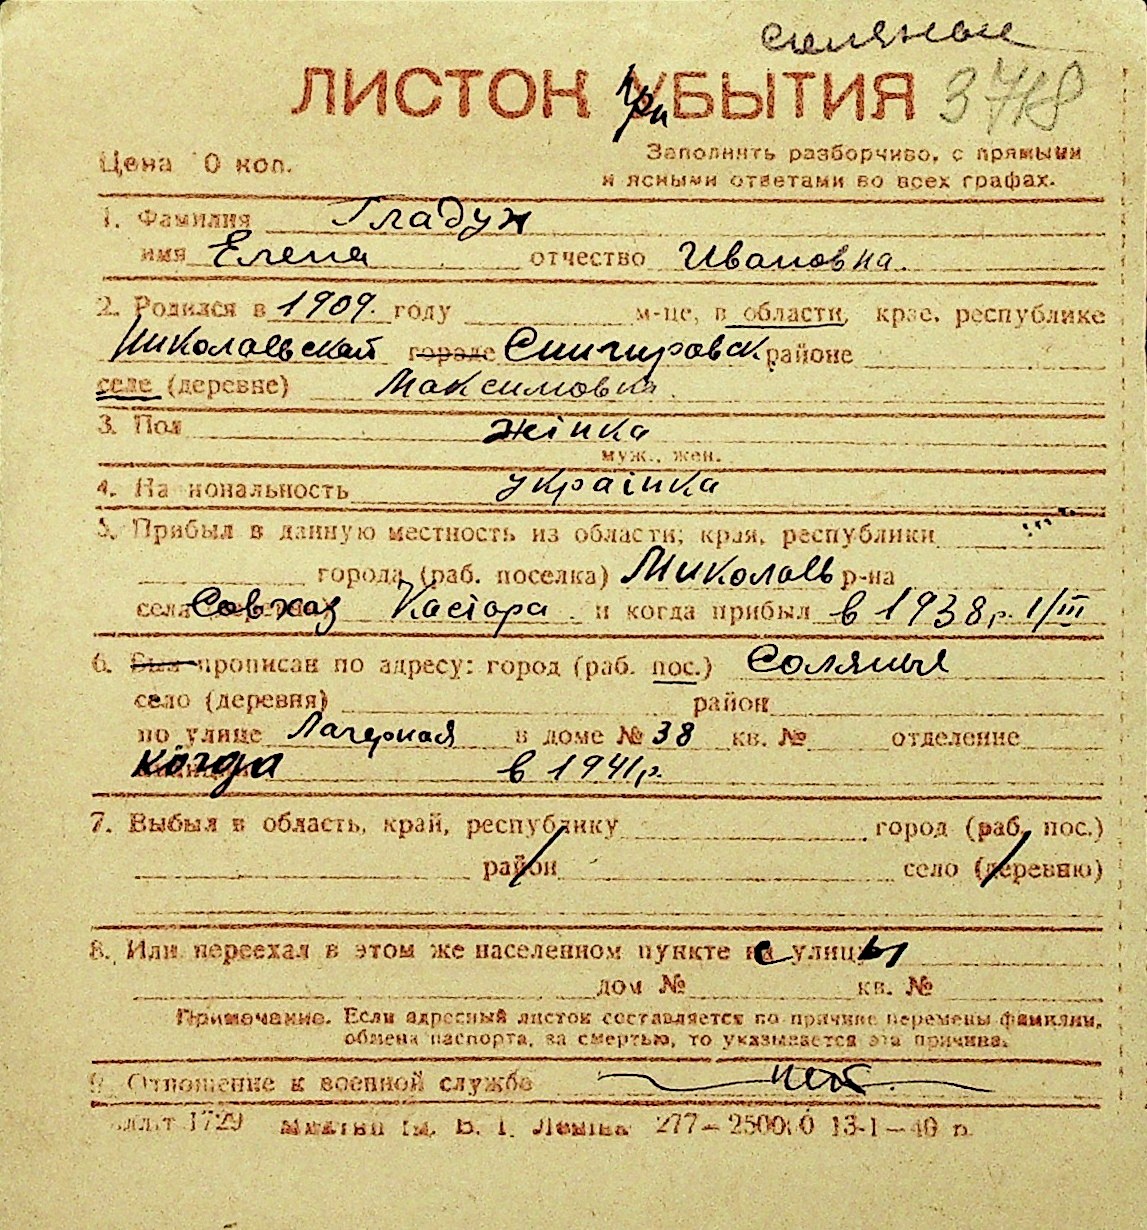 соляные
ЛИСТОК прибЫТИЯ 3718
Цена 10 коп. Заполнять разборчиво, с прямыми
и ясными ответами во всех графах.
1. Фамилия Гладуж
имя Елена отчество Ивановна
2. Родился в 1909. году м-це, в области, крае, республике
Николаевской городе Снигировск районе
селе (деревне) Максимовка
3. Пол жінка
муж., жен.
4. Национальность українка
5. Прибыл в данную местность из области; края, республики
города (раб. поселка) Миколаїв р-на
села Совхаз и когда прибыл в 1938 р. 1/III
6. Был прописан по адресу: город (раб. пос.) Соляныя
село (деревня) район
по улице Лагерная в доме № 38 кв. № отделение
когда в 1941 р.
7. Выбыл в область, край, республику город (раб. пос.)
район село (деревню)
8. Или переехал в этом же населенном пункте с улицы
дом № кв. №
Примечание. Если адресный листок составляется по причине перемены фамилии,
обмена паспорта, за смертью, то указывается эта причина.
9. Отношение к военной службе нет.
1729 им. В. І. Леніна 277–25000 13-1–40 р.